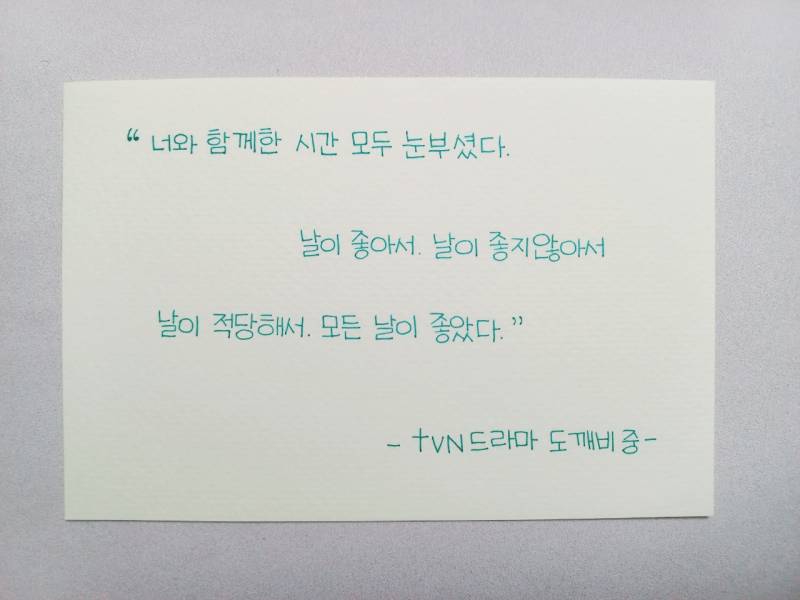 “ 너와 함께한 시간 모두 눈부셨다.
날이 좋아서. 날이 좋지않아서
날이 적당해서. 모든 날이 좋았다.”
- tvN드라마 도깨비 중-